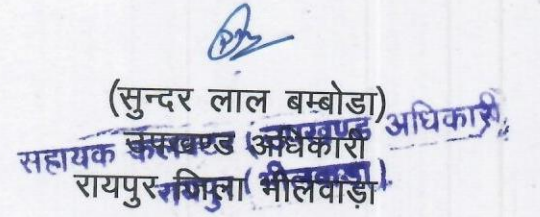 (सुन्दर लाल बम्बोडा)
उपखण्ड अधिकारी
रायपुर जिला भीलवाडा
सहायक कलक्टर उपखण्ड अधिकारी
रायपुर (भीलवाड़ा)